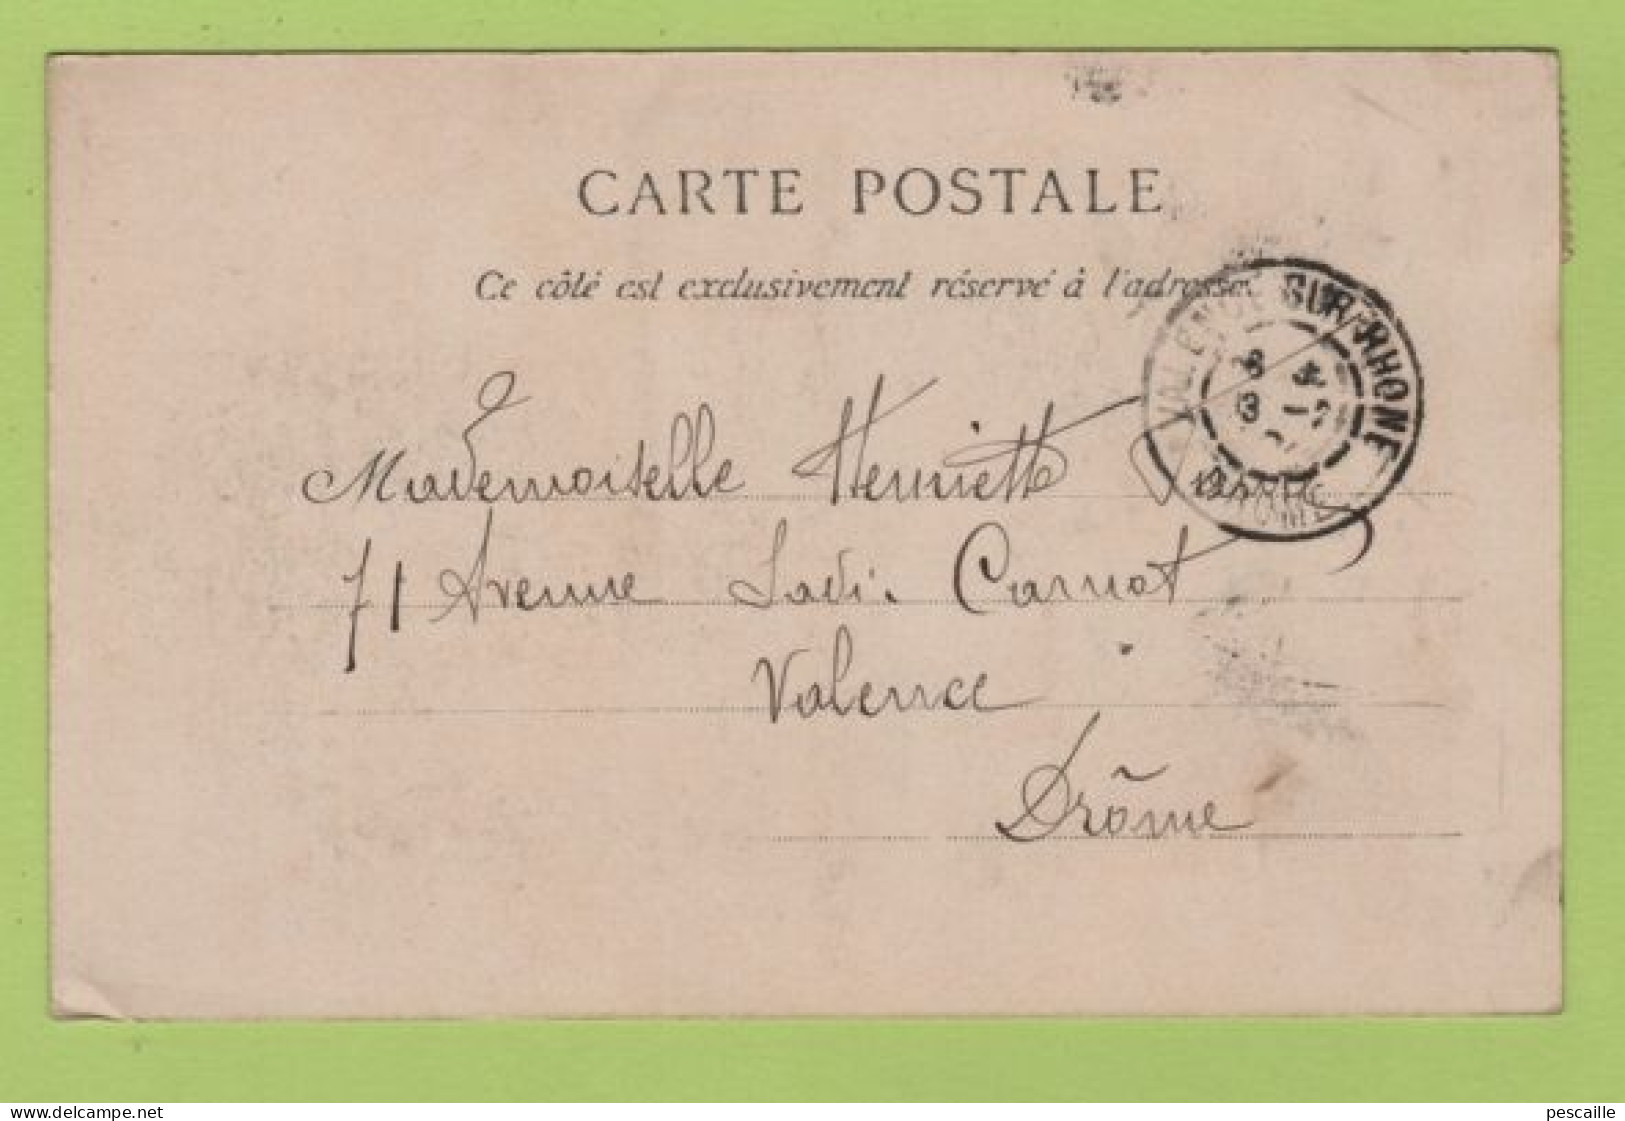 CARTE POSTALE
Ce côté est exclusivement réservé à l'adresse
VALENCE SUR RHONE
DROME
Mademoiselle Henriette
71 Avenue Sadi. Carnot
Valence
Drôme
www.delcampe.net
pescaille